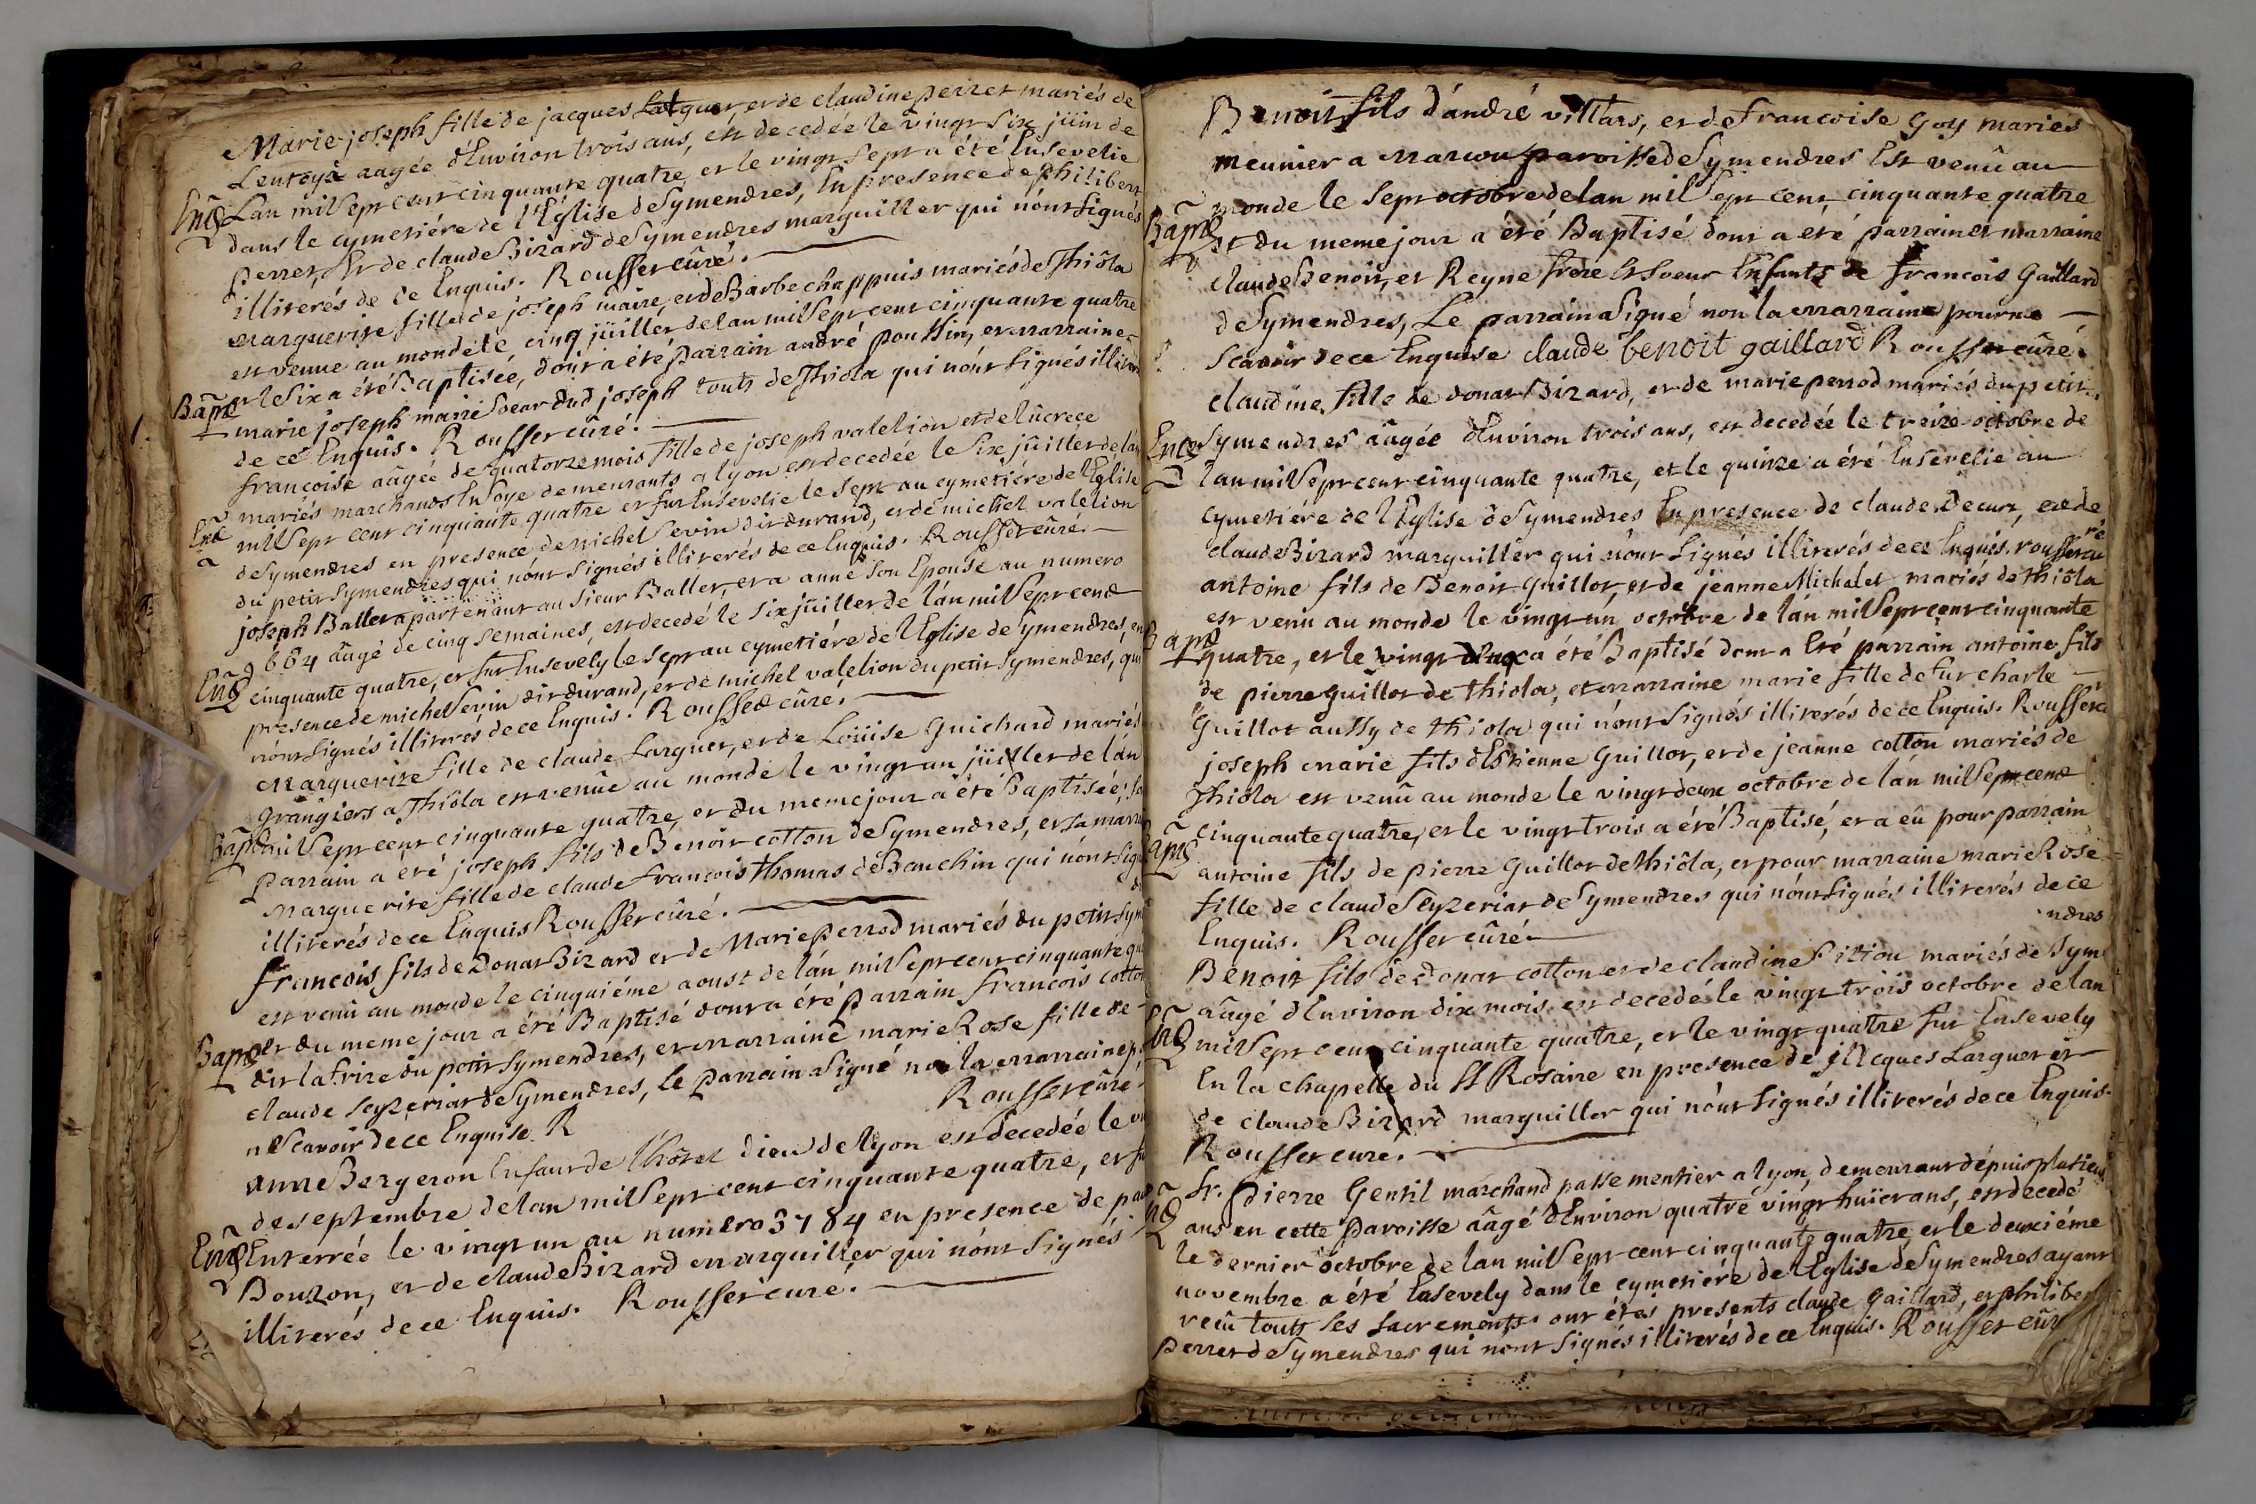 Marie joseph fille de jacques Larguer, et de claudine perret mariés de
Lentoya aagée d'Environ trois ans, est decedée le vingt six juin de
Enꝭ Lan mil Sept cent cinquante quatre et le vingt sept a été Ensevelie
dans le cymetiére de l'Église de Symendres, En presence de philibert
perret, Et de claude Bizard de Symendres marguiller qui n'ont Signés
illiterés de ce Enquis. Rousset cûré.
marguerite fille de joseph maire, et de Barbe chappuis mariés de Thiôla
est venue au monde le cinq jüillet de lan mil Sept cent cinquante quatre
Bapꝭ et le Six a été Baptisée, dont a été parrain andré poussin, et marraine
marie joseph maire Soeur dud joseph touts de Thiola qui n'ont Signés illiterés
de ce Enquis. Rousset cûré.
francoise aâgée de quatorze mois fille de joseph valelion et de lucrece
mariés marchands En Soye demeurants a lyon est decedée le Six jüillet de lan
Enꝭ mil Sept cent cinquante quatre et fut Ensevelie le Sept au cymetiére de l'Eglise
de Symendres en presence de michel Sevin dit durand, et de michel valelion
du petit Symendres qui n'ont Signés illiterés de ce Enquis. Rousset cûré.
joseph Ballet apartenant au Sieur Ballet, et a anne Son Epouse au numero
664 aâgé de cinq semaines, est decedé le six jüillet de lan mil Sept cent
Enꝭ cinquante quatre, et fut Ensevely le sept au cymetiére de l'Eglise de Symendres, en
presence de michel Sevin dit durand, et de michel valelion du petit Symendres, qui
n'ont Signés illiterés de ce Enquis. Rousset cûré.
Marguerite fille de claude Larguer, et de Loüise Guichard mariés
Grangiers a Thiôla est venûe au monde le vingt un jüillet de lan
Bapꝭ mil Sept cent cinquante quatre, et du meme jour a été Baptisée; Son
parrain a été joseph fils de Benoit cotton de Symendres, et sa marr
Marguerite fille de claude francois thomas de Banchin qui n'ont Sig
illiterés de ce Enquis Rousset cûré.
francois fils de Donat Bizard et de Marie perrod mariés du petit Sym
est venû au monde le cinquiéme aoust de lan mil Sept cent cinquante qu
Bapꝭ et du meme jour a été Baptisé dont a été parrain francois cotton
dit la frize du petit Symendres, et marraine marie Rose fille de
claude Seyzeriat de Symendres, le parrain a Signé non la marraine p
n'e Scavoir de ce Enquise. R Rousset cûré
anne Bergeron Enfant de l'hôtel dieu de lyon est decedée le
de septembre de lan mil Sept cent cinquante quatre, et fu
Enꝭ Enterrée le vingt un au numero 3784 en presence de
Bouzon, et de claude Bizard marguiller qui n'ont Signés
illiterés de ce Enquis. Rousset curé.
Benoit fils d'andré villars, et de francoise Goy mariés
meunier a marcou paroisse de Symendres Est venû au
monde le Sept octobre de lan mil Sept cent cinquante quatre
Bapꝭ et du meme jour a été Baptisé dont a eté parrain et marraine
claude Benoit, et Reyne frere et Soeur Enfants de francois Gaillard
de Symendres, Le parrain a Signé non la marraine pour ne
Scavoir de ce Enquise claude benoit gaillard Rousset cûré.
claudine fille de donat Bizard, et de marie perrod mariés du petit
Enꝭ Symendres aâgée d'Environ trois ans, est decedée le treize octobre de
lan mil Sept cent cinquante quatre, et le quinze a été Ensevelie au
cymetiere de l'Eglise de Symendres En presence de claude Decurt, et de
claude Bizard marguiller qui n'ont Signés illiterés de ce Enquis. rousset curé
antoine fils de Benoit Guillot, et de jeanne Michalet mariés de thiôla
est venû au monde le vingt un octobre de lan mil Sept cent cinquante
Bapꝭ quatre, et le vingt deux a été Baptisé dont a été parrain antoine fils
de pierre Guillot de thiola, et marraine marie fille de fut charle
Guillot aussy de thiola qui n'ont Signés illiterés de ce Enquis. Rousset c
joseph marie fils d'Estienne Guillot, et de jeanne cotton mariés de
Thiôla est venû au monde le vingt deux octobre de lan mil Sept cent
Bapꝭ cinquante quatre, et le vingt trois a été Baptisé, et a eû pour parrain
antoine fils de pierre Guillot de thiôla, et pour marraine marie Rose
fille de claude Seyzeriat de Symendres qui n'ont Signés illiterés de ce
Enquis. Rousset cûré
Benoit fils de donat cotton et de claudine Pitiou mariés de Symendres
aâgé d'Environ dix mois est decedé le vingt trois octobre de lan
Enꝭ mil Sept cent cinquante quatre, et le vingt quatre fut Ensevely
En la chapelle du St Rosaire en presence de jacques Larguer et
de claude Bizard marguiller qui n'ont Signés illiterés de ce Enquis.
Rousset cure.
Sr. pierre Gentil marchand passementier a lyon, demeurant dépuis plusieurs
Enꝭ ans en cette paroisse aâgé d'Environ quatre vingt huict ans, est decedé
le dernier octobre de lan mil Sept cent cinquante quatre et le deuxiéme
novembre a été Ensevely dans le cymetiére de l'Eglise de Symendres ayant
recû touts ses Sacrements. ont étés presents claude Gaillard, et philibert
perret de Symendres qui n'ont Signés illiterés de ce Enquis. Rousset cûré